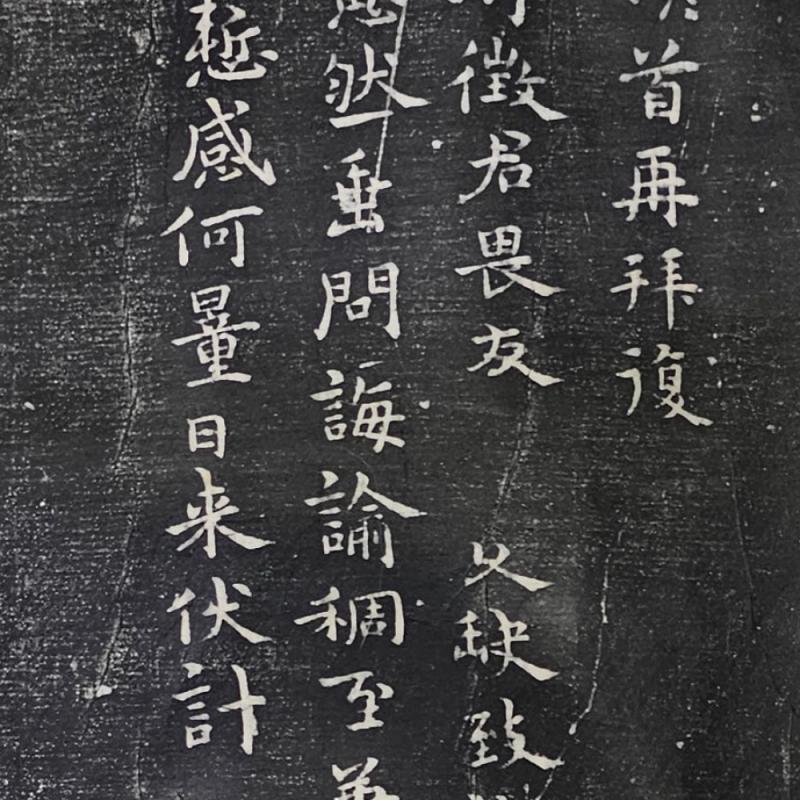 首再拜復
徵君畏友 久缺致
然垂問誨諭稠至兼
慙感何量日来伏計